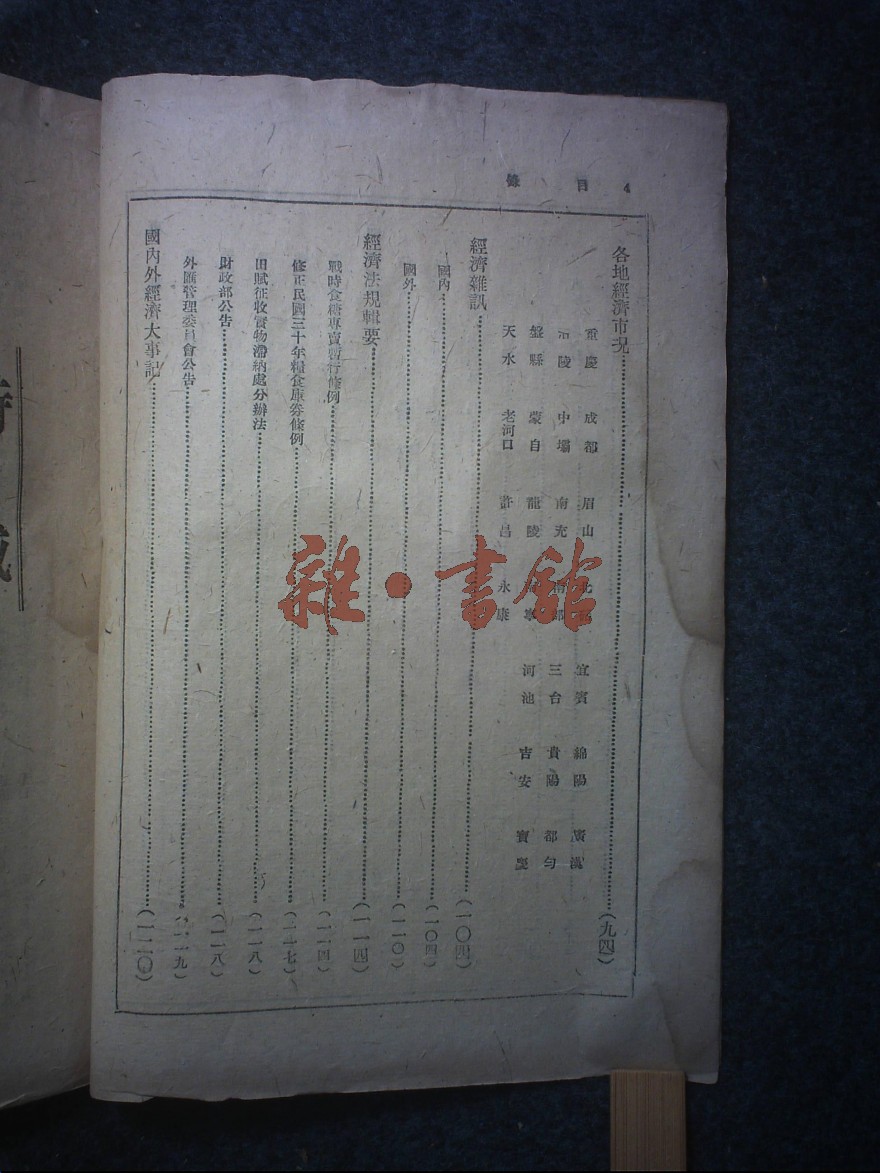 4 目錄
各地經濟市況……(九四)
重慶 成都 眉山 宜賓 綿陽 廣漢
涪陵 中壩 南充 南部 三台 貴陽 都勻
盤縣 蒙自 龍陵 河池 吉安 寶慶
天水 老河口 許昌 永康
經濟雜訊……(一〇四)
國內……(一〇四)
國外……(一一〇)
經濟法規輯要……(一一四)
戰時食糖專賣暫行條例……(一一四)
修正民國三十年糧食庫券條例……(一一七)
田賦征收實物滯納處分辦法……(一一八)
財政部公告……(一一八)
外匯管理委員會公告……(一一九)
國內外經濟大事記……(一二〇)
雜·書館